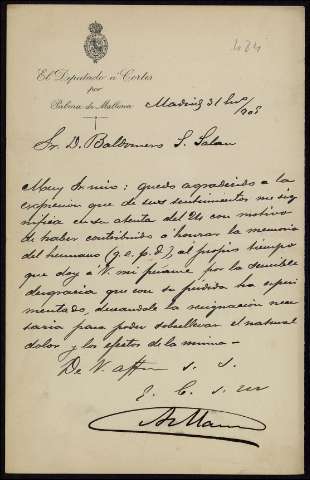 424
El Diputado á Cortes
por
Palma de Mallorca
Madrid 31
Sr. D. Baldomero S.
Muy Sr. mio: quedo agradecido a la
expresion que de sus sentimientos me sig-
nifica en su atenta del con motivo
de haber contribuido a honrar la memoria
del hermano (q. e. p. d.), al propio tiempo
que doy a V. mi pesame, por la sensible
desgracia que con su perdida ha experi-
mentado, deseandole la resignación nece-
saria para poder sobrellevar el natural
dolor y los efectos de la misma—
De V. affmo s. s.
q. s. m